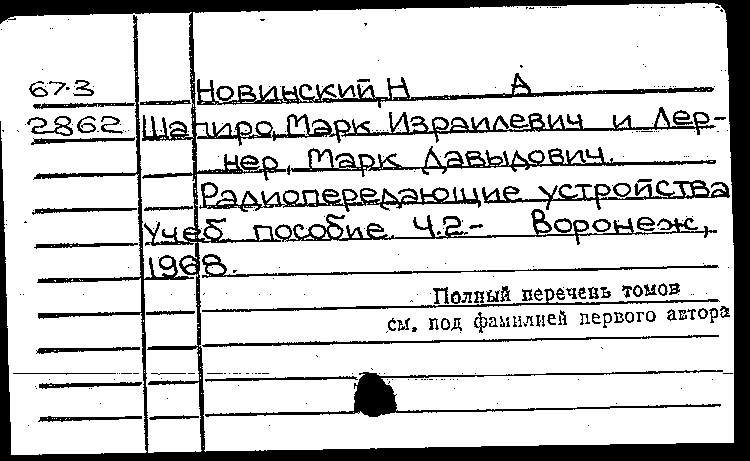 67-3 Новинский, Н А
2862 Шапиро, Марк Израилевич и Лер-
нер, Марк Давыдович.
Радиопередающие устройства
Учеб пособие Ч.2- Воронеж,
1968.
Полный перечень томов
см. под фамилией первого автора